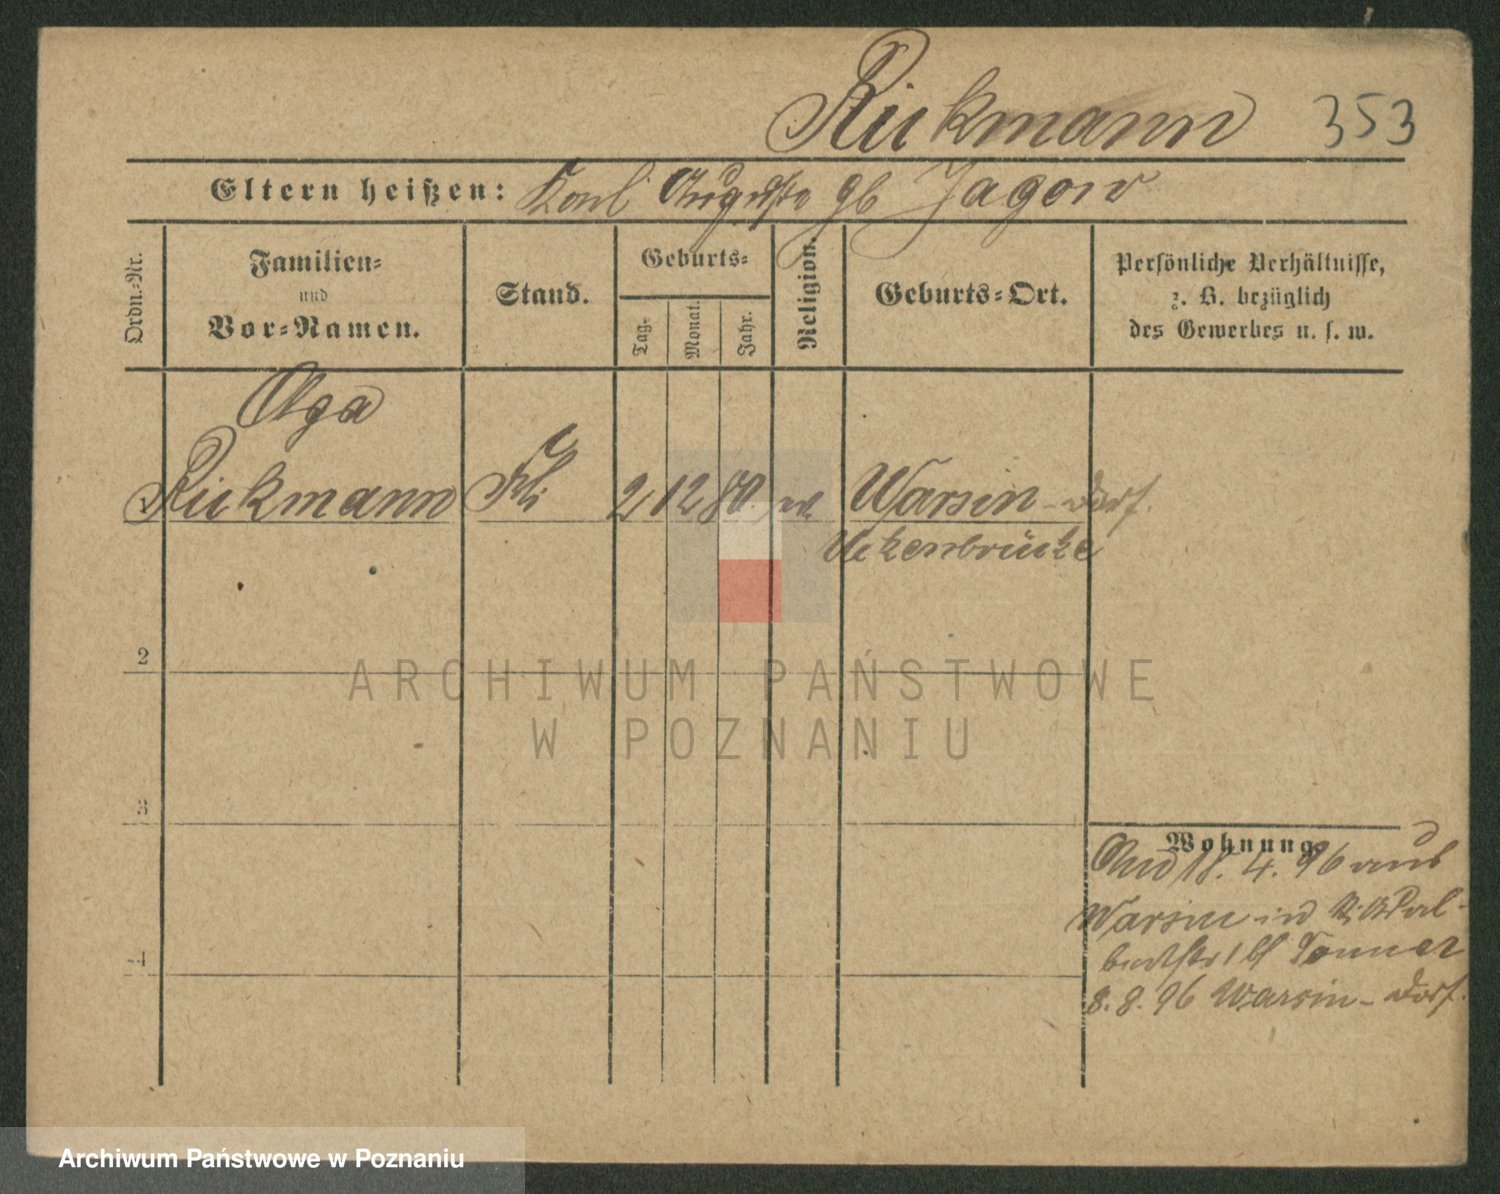 Rückmann 353
Eltern heißen: Karl Auguste gb Jagow
Ordn.-Nr.
Familien-
und
Vor-Namen.
Stand.
Geburts-
Tag.
Monat.
Jahr.
Religion.
Geburts-Ort.
Persönliche Verhältnisse,
z. B. bezüglich
des Gewerbes u. s. w.
Olga
Rückmann 2 12 80. ev. Warsin - Dorf.
Uekenbrücke
2
3
4
Wohnung
18. 4. 96 aus
Warsin
8. 8. 96 Warsin - Dorf.
ARCHIWUM PAŃSTWOWE
W POZNANIU
Archiwum Państwowe w Poznaniu